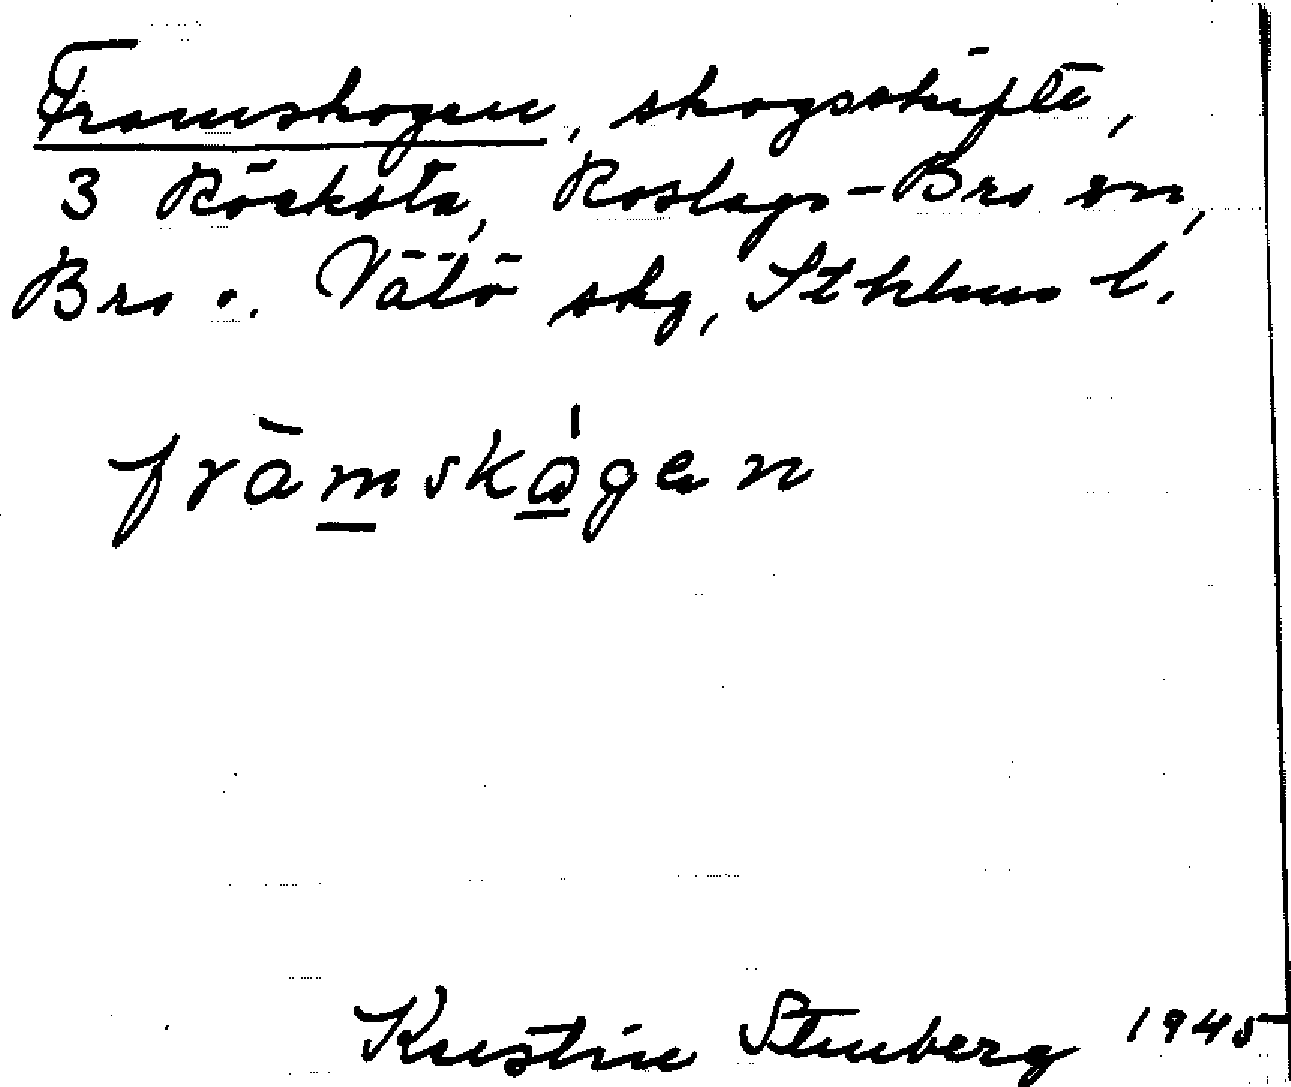 Framskogen, skogsskifte,
3 Röcksta, Roslags-Bro sn,
Bro o. Vätö skg, Sthlms l.
fràmskågen
Kristin Stenberg 1945